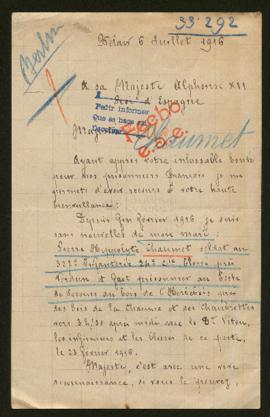 33-292
Berlin
6 Juillet 1916
a sa Majesté Alphonse XIII
Roi d'Espagne
Pedir informes
que se haga
Majesté
Fecho
Chaumet
Ayant appris votre inlassable bonté
pour les prisonniers français je me
permets d'avoir recours à votre haute
bienveillance:
Depuis février 1916 je suis
sans nouvelles de mon mari:
Pierre Hippolyte Chaumet soldat au
Infanterie blessé près
Verdun et fait prisonnier au poste
de secours du bois de près
des bois de la chaume et des
vers midi avec le Dr
les infirmiers et les blessés de ce poste,
le 23 février 1916.
Majesté, c'est avec une vive
reconnaissance, si vous le pouvez,